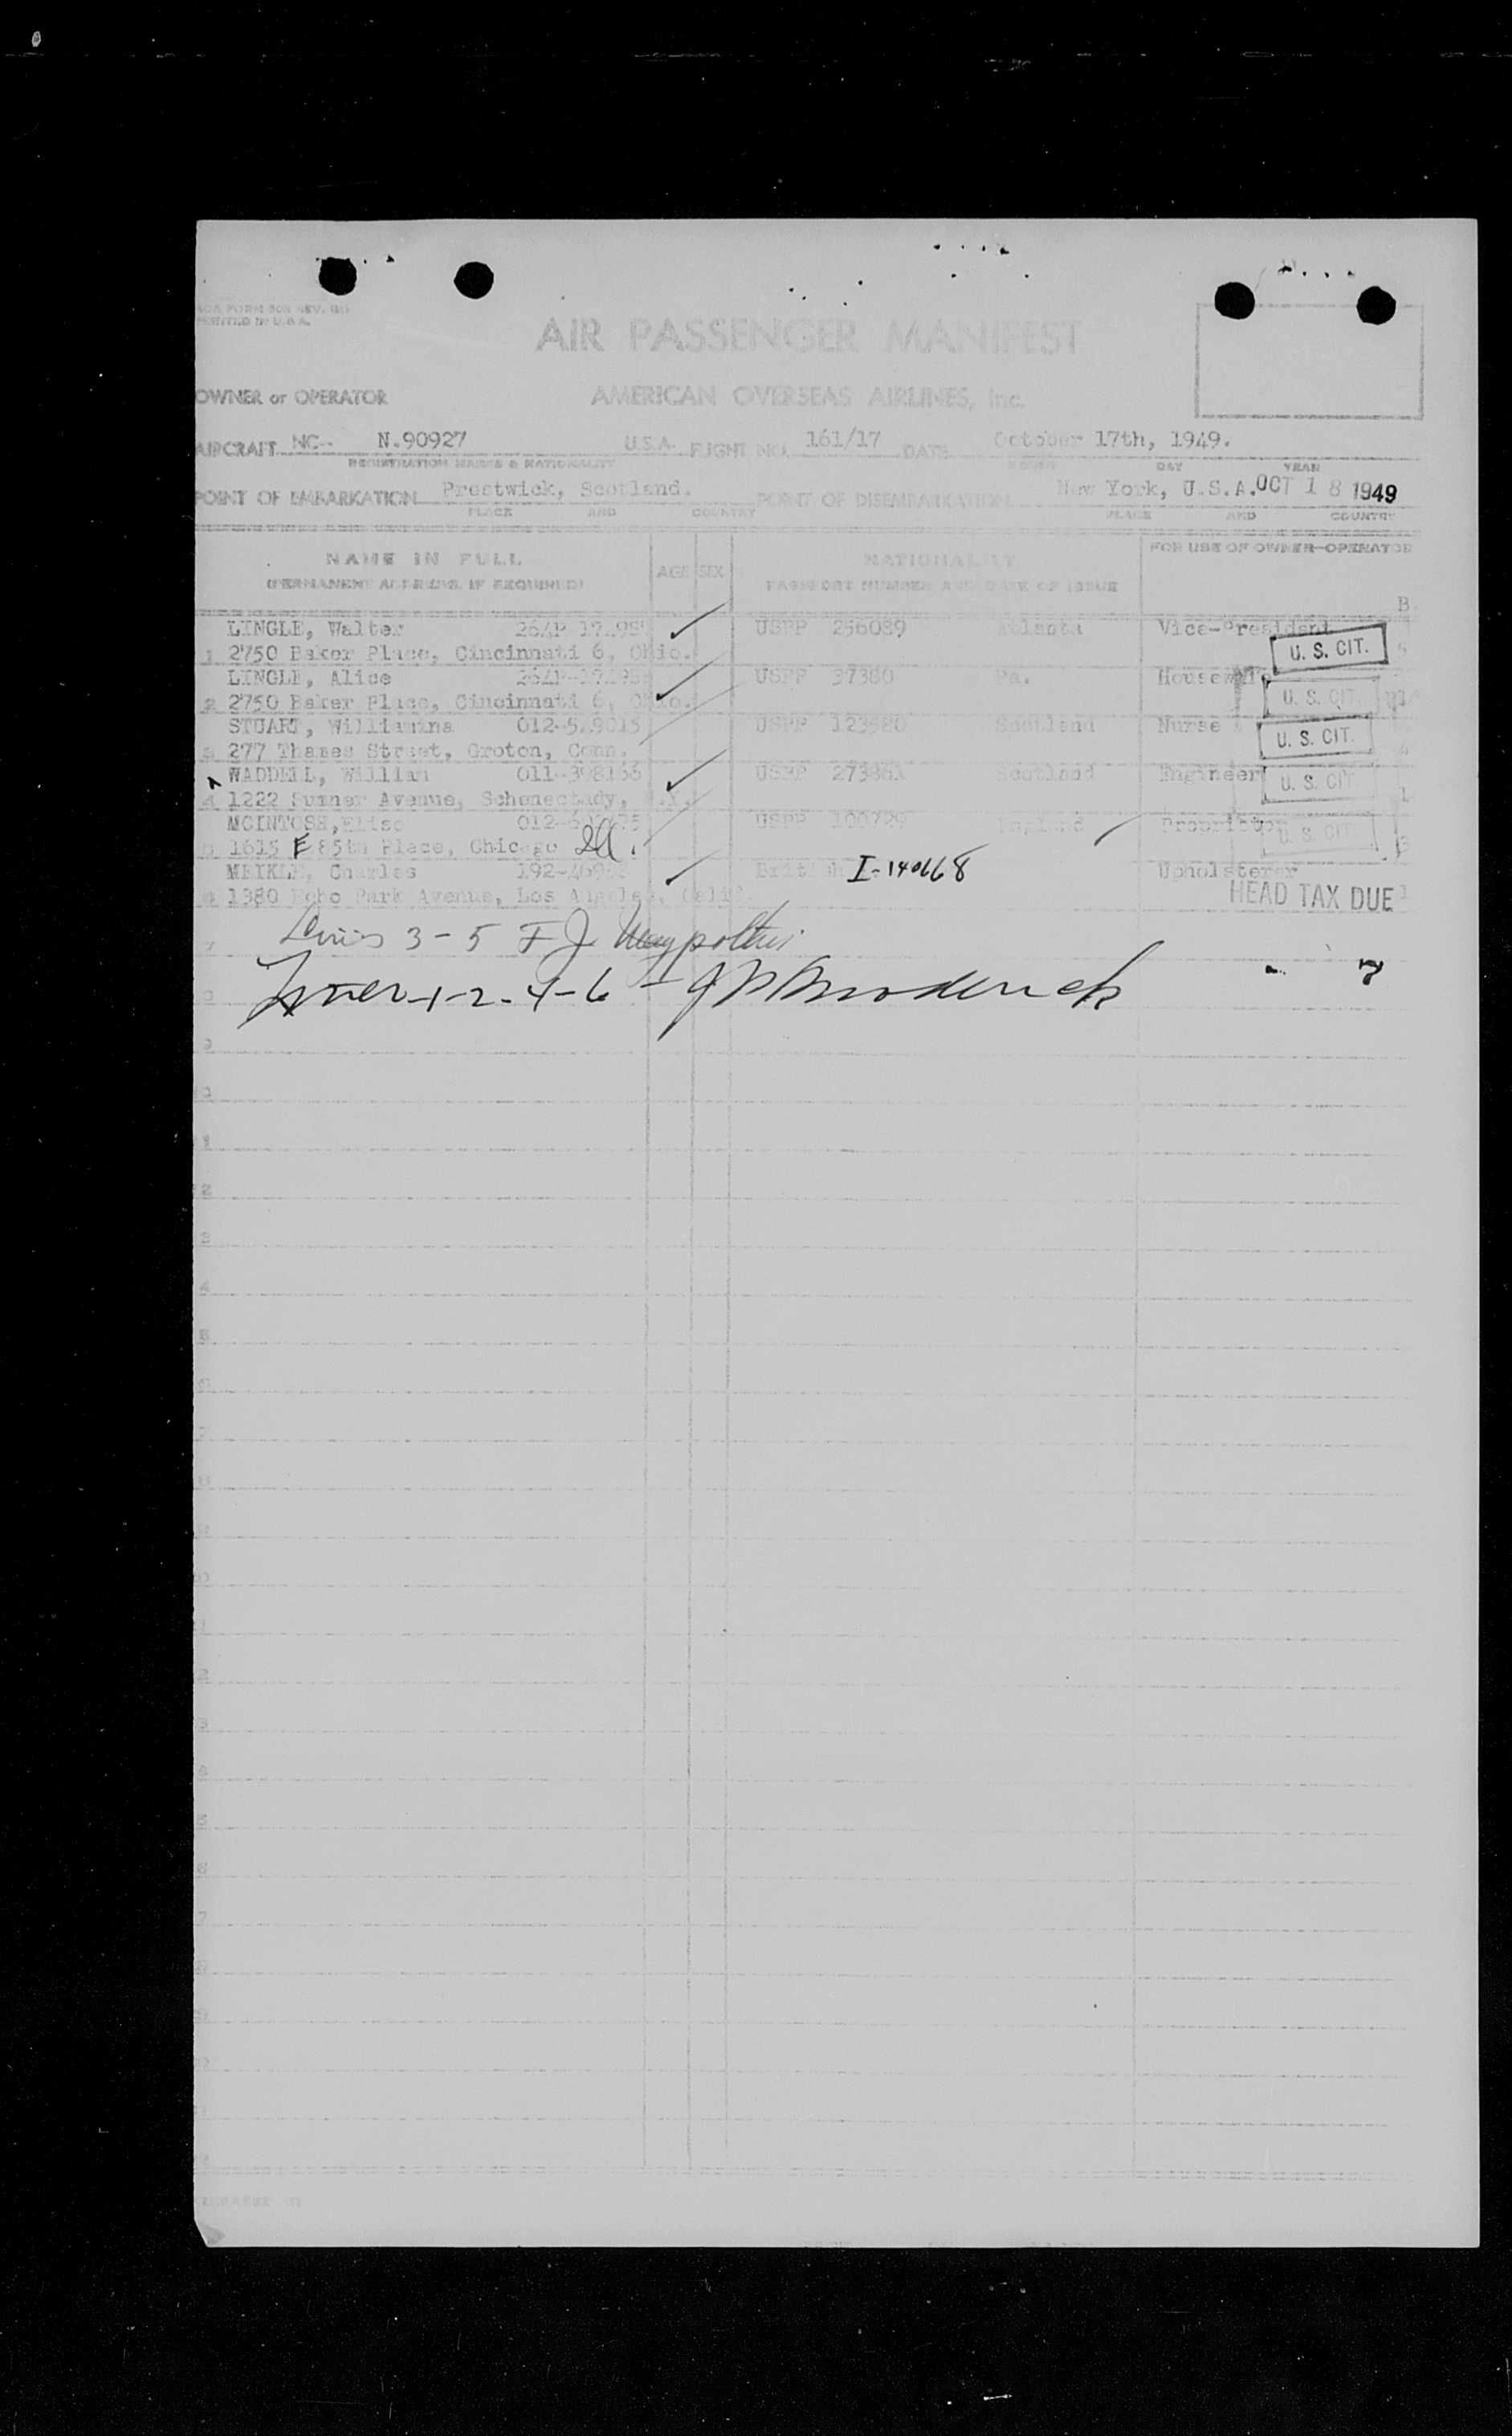 AOA FORM REV.
PRINTED IN U.S.A.
AIR PASSENGER MANIFEST
OWNER or OPERATOR AMERICAN OVERSEAS AIRLINES, Inc.
AIRCRAFT NC-- N.90927 U.S.A. FLIGHT NO. 161/17 DATE October 17th, 1949.
REGISTRATION MARKS & NATIONALITY MONTH DAY YEAR
POINT OF EMBARKATION Prestwick, Scotland. POINT OF DISEMBARKATION New York, U.S.A. OCT 18 1949
PLACE AND COUNTRY PLACE AND COUNTRY
NAME IN FULL AGE SEX NATIONALITY FOR USE OF OWNER-OPERATOR
(PERMANENT ADDRESS IF REQUIRED) PASSPORT NUMBER AND DATE OF ISSUE
B
LINGLE, Walter USPP 256089 Atlanta Vice-President
1 2750 Baker Place, Cincinnati 6, Ohio. U. S. CIT.
LINGLE, Alice USPP 37380 Pa. Housewife
2 2750 Baker Place, Cincinnati 6, Ohio. U. S. CIT.
STUART, Williamina 012-549015 USPP 123580 Scotland Nurse
3 277 Thames Street, Groton, Conn. U. S. CIT.
WADDELL, William 011-398166 USPP Scotland Engineer
4 1222 Sumner Avenue, Schenectady, N.Y. U. S. CIT
MCINTOSH, Elise USPP 100729 England Proprietor
5 1615 E 85th Place, Chicago Ill. U. S. CIT
MEIKLE, Charles British I-140668 Upholsterer
6 1380 Echo Park Avenue, Los Angeles, Calif. HEAD TAX DUE
Lines 3-5 F J
Lines-1-2-4-6 - J P Broderick